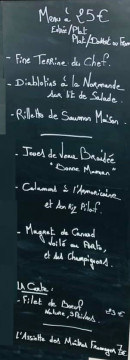 Menu à 25€
Entrée/Plat
Plat/Dessert ou From
- Fine Terrine du Chef.
- Diablotins à la Normande
sur lit de Salade.
- Rillettes de Saumon Maison.
- Joues de Veau Braisée
"Bonne Maman"
- Calamant à l'Armoricaine
et son Riz Pilaf.
- Magret de Canard
Sauté au Porto,
et aux Champignons.
La Carte:
- Filet de Boeuf
Nature,
L'Assiette des Maîtres Fromagers 7